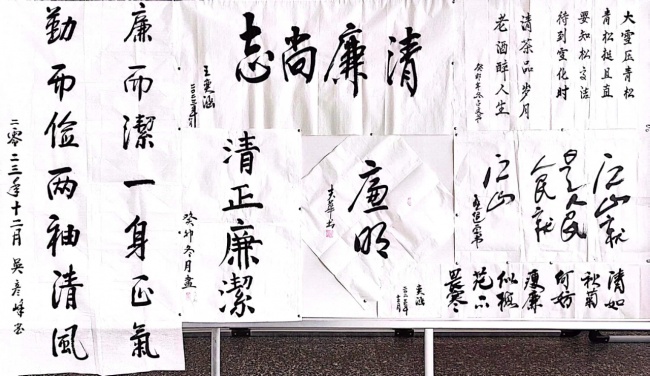 大雪压青松
青松挺且直
要知松高洁
待到雪化时
清茶品岁月
老酒醉人生
清廉尚志
廉而潔一身正氣
勤而俭两袖清風
二零二三年十二月 吴彦峰书
清正廉潔
癸卯冬月
廉明
江山就
是人民
人民就
江山
清如
秋菊
何妨
瘦廉
似梅
花不
畏寒